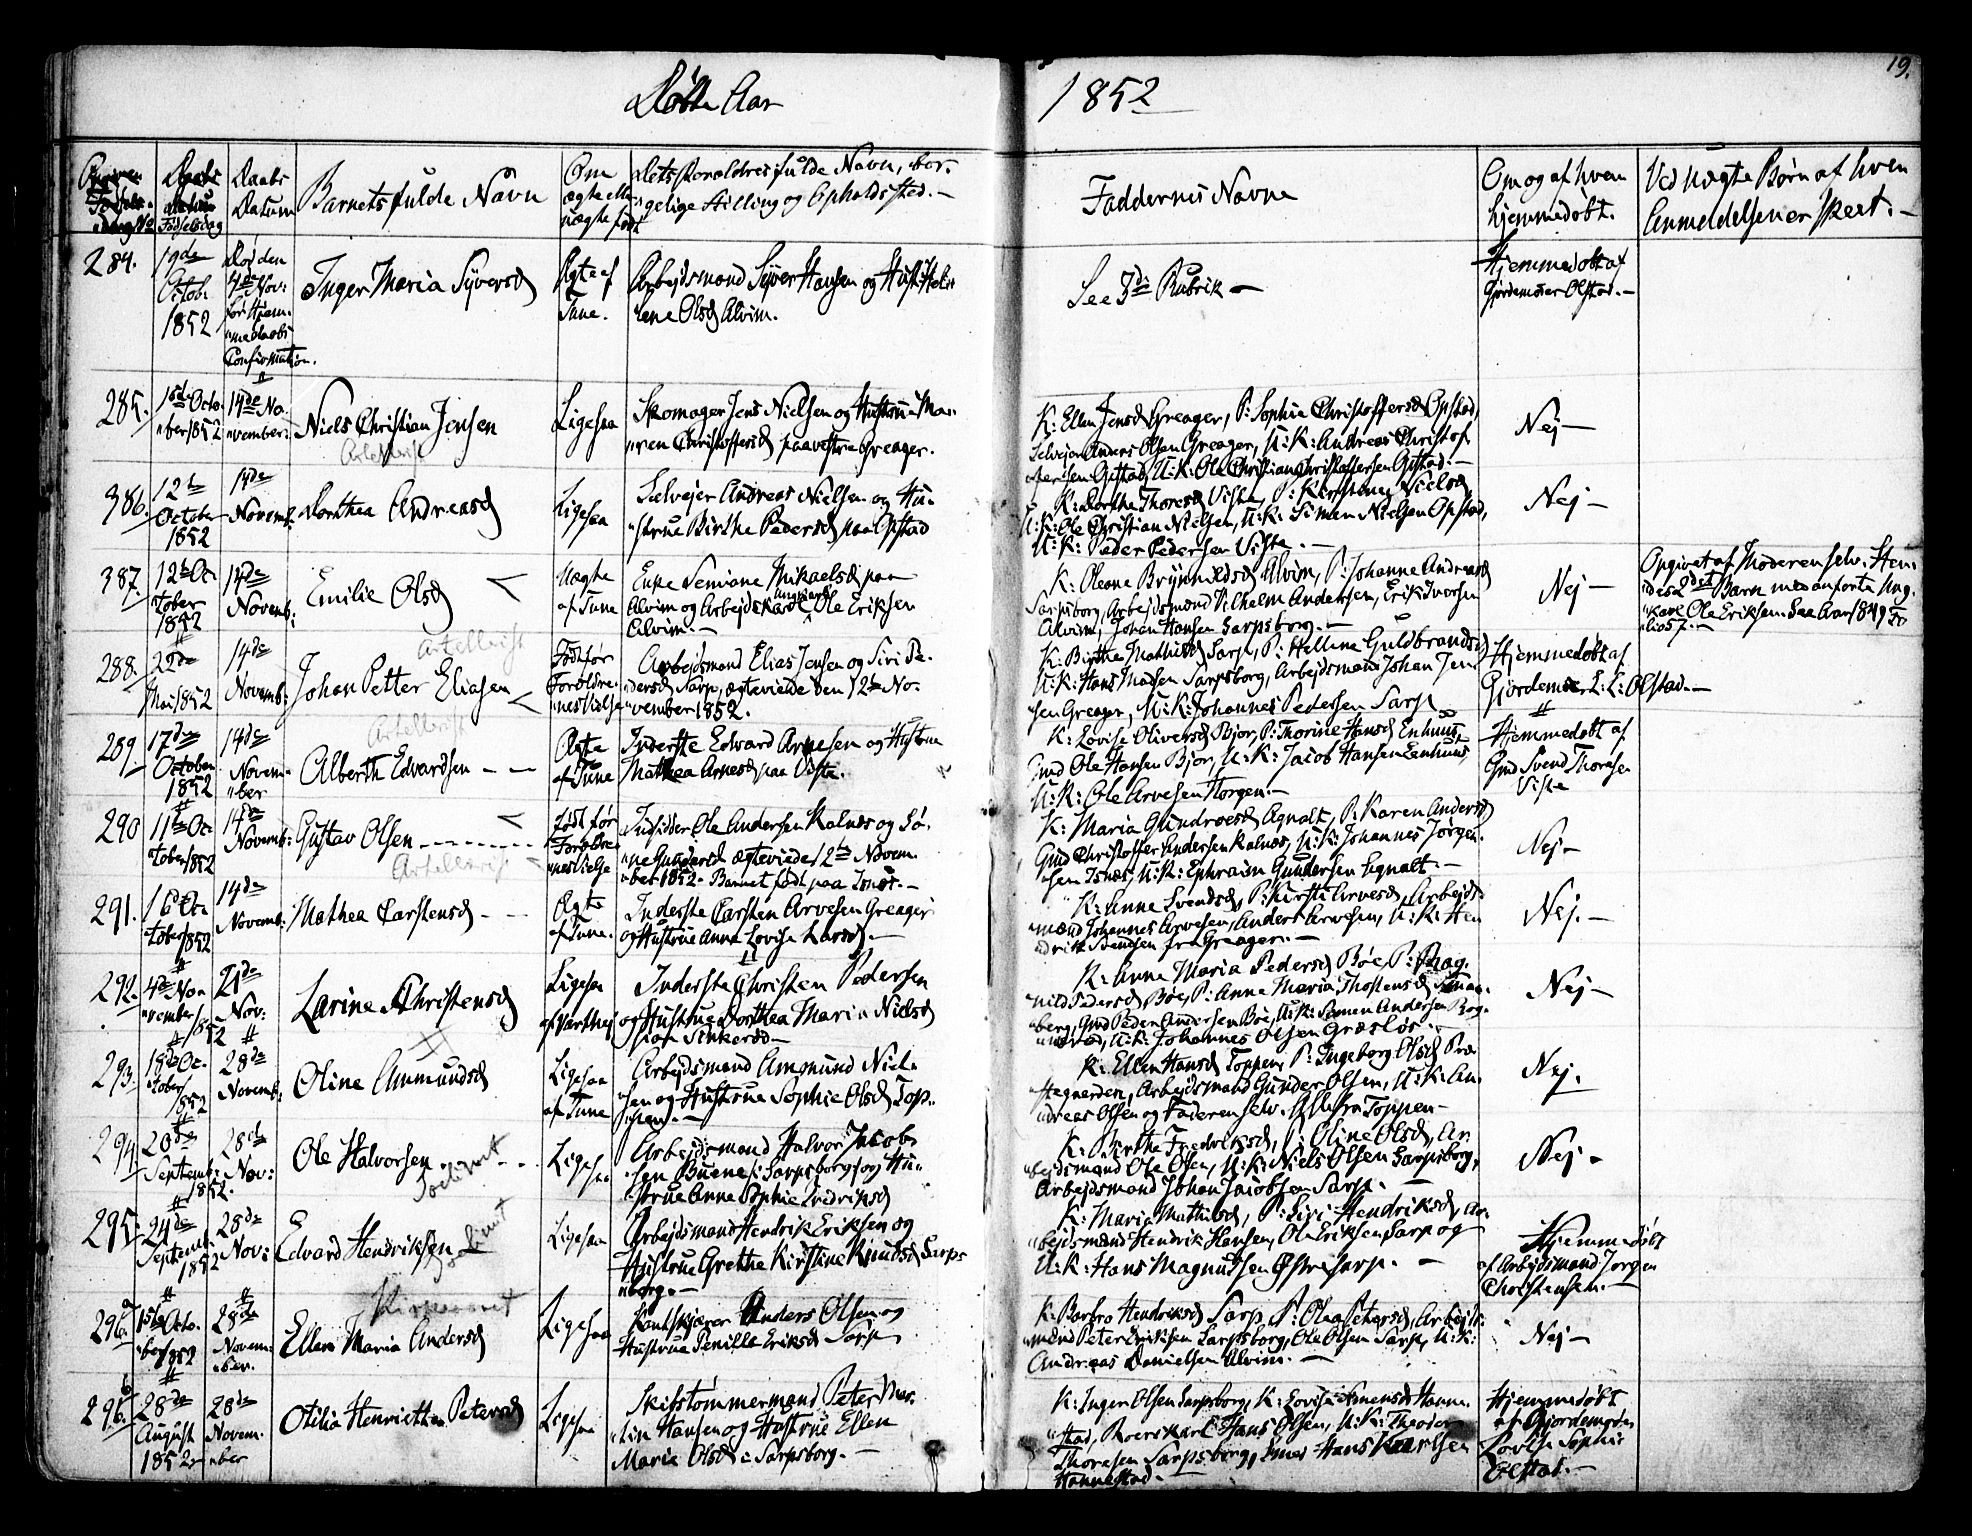 19.
Døbte Aar 1852
Daabs Datum
Fødselsdag
Barnets fulde Navn
Om ægte eller uægte født
Dets Forældres fulde Navn, bor-
"gelige Stilling og Opholdssted. -
Faddernes Navne
Om og af hvem
hjemmedøbt.
Ved uægte Børn af hvem
Anmeldelsen er skeet. -
284.
19de
Octob.
1852
Død den
4de Nov:
før Hjem-
"medaabs
Confirmation.
Inger Maria Syversd
Ægte af
Tune.
Arbejdsmand Syver Hansen og Hust: Hele-
"lene Olsd Alvim.
See 3die Rubrik -
Hjemmedøbt af
Gjordemoer Olstad. -
285.
1ste Octo-
"ber 1852
14de No-
"vember:
Niels Christian Jensen
Ligesaa
Skomager Jens Nielsen og Hustrue Ma-
"ren Christoffersd paa vestre Greager.
K: Ellen Jensd Greager, P: Sophie Christoffersd Opstad,
Selvejer Anders Olsen Greager, U: K: Andreas Christof-
"fersen Opstad, U: K: Ole Christian Christoffersen Opstad. -
Nej -
386.
12te
October
1852
14de
Novemb.
Dorthea Andreasd
Ligesaa
Selvejer Andreas Nielsen og Hu-
"strue Birthe Pedersd paa Opstad
K: Dorthe Thoresd Viste, P: Kirstine Nielsd
U: K: Ole Christian Nielsen, U: K: Simen Nielsen Opstad,
U: K: Peder Pedersen Viste. -
Nej -
387.
12te Oc-
"tober
1852
14de
Novemb:
Emilie Olsd
Uægte
af Tune
Enke Seniane Mikaelsd paa
Alvim og Arbejdskarl, Ungkarl Ole Eriksen
Alvim. -
K: Oleane Brynnildsd Alvim, P: Johanne Andreasd
Sarpsborg, Arbejdsmand Vilhelm Andersen, Erik Iversen
Alvim, Johan Hansen Sarpsborg. -
Nej -
Opgivet af Moderen selv. Hen-
"des 2det Barn med anførte Ung-
"karl Ole Eriksen. See Aar 1849 Fo-
"lio 57. -
288.
22de
Mai 1852
14de
Novemb:
Johan Petter Eliasen
Født før
Forældre-
"nes Vielse
Arbejdsmand Elias Jensen og Siri Pe-
"dersd Sarp, ægteviede den 12te No-
"vember 1852.
K: Birthe Mathisd Sarp, P: Helline Guldbrandsd,
U: K: Hans Madsen Sarpsborg, Arbejdsmand Johan Jen-
"sen Greager, U: K: Johannes Pedersen Sarp
Hjemmedøbt af
Gjordemoer L: L: Olstad. -
289.
17de
October
1852
14de
Novem-
"ber
Alberth Edvardsen - -
Ægte
af Tune
Inderste Edvard Arnesen og Hustrue
Mathea Arnesd paa Viste.
K: Lovise Oliversd Bjor, P: Thorine Hansd Enhuus,
Gmd Ole Hansen Bjor, U: K: Jacob Hansen Eenhuus
U: K: Ole Arvesen Horgen. -
Hjemmedøbt af
Gmd Svend Thoresen
Viste
290
11te Oc-
"tober 1852
14de
Novemb:
Gustav Olsen - - - - - - -
Født før
Forældre-
"nes Vielse
Indsidder Ole Andersen Kalnæs og Sø-
"ne Gundersd ægteviede 12te Novem-
"ber 1852. Barnet født paa Isnæs. -
K: Maria Gundersd Agnalt, P: Karen Andersd
Gmd Christoffer Andersen Kalnæs, U: K: Johannes Jørgen-
"sen Isnæs, U: K: Ephraim Gundersen Agnalt. -
Nej -
291.
16 Oc-
"tober 1852
14de
Novemb:
Mathea Carstensd - -
Ægte
af Tune.
Inderste Carsten Arvesen Greager
og Hustrue Anne Lovise Larsd. -
K: Anne Svendsd, P: Kirsti Arvesd, Arbejds-
"mænd Johannes Arvesen, Anders Arvesen, U: K: Hen-
"drik Bengsen fra Greager. -
Nej. -
292.
4de No-
"vember
1852
21de
Nov:
Larine Christensd
Ligesaa
af Varteig
Inderste Christen Pedersen
og Hustrue Dorthea Maria Nielsd
K: Anne Maria Pedersd Bøe, P: Rag-
"nild Pedersd Bøe, P: Anne Maria Thostensd
"berg, Gmd Peder Andersen Bøe, U: K: Simen Andersen
U: K: Johannes Olsen Græsløs. -
Nej -
293.
18de Oc-
"tober
1852
28de
Novemb:
Oline Amundsd
Ligesaa
af Tune
Arbejdsmand Amgmund Niel-
"sen og Hustrue Sophie Olsd Top-
"pen. -
K: Ellen Hansd Toppen, P: Ingeborg Olsd Præ-
"stegaarden, Arbejdsmand Gunder Olsen, U: K: An-
"dreas Olsen og Faderen selv. Alle fra Toppen -
Nej.
294
20de
Septemb:
1852.
28de
Nov:
Ole Halvorsen
Ligesaa
Arbejdsmand Halvor Jacob-
"sen Buene i Sarpsborg og Hu-
"strue Anne Sophie Fredriksd
K: Birthe Fredriksd, P: Oline Olsd, Ar-
"bejdsmand Ole Olsen, U: K: Niels Olsen Sarpsborg,
Arbejdsmand Johan Jacobsen Sarp. -
Nej -
295.
24de
Septemb:
1852
28de
Nov:
Edvard Hendriksen
Ligesaa
Arbejdsmand Hendrik Eriksen og
Hustrue Grethe Kirstine Knudsd Sarps-
"borg. -
K: Maria Mathisd, P: Siri Hendriksd, Ar-
"bejdsmænd Hendrik Hansen, Ole Eriksen Sarp og
U: K: Hans Magnussen Østre Sarp. -
Hjemmedøbt
af Arbejdsmand Jørgen
Christensen. -
296. a
1ste Octo-
"ber 1852
28de
Novem-
"ber.
Ellen Maria Andersd
Ligesaa
Kantskjærer Anders Olsen og
Hustrue Pernille Eriksd Sarp
K: Barbro Hendriksd Sarp, P: Olea Petersd, Arbejds-
"mænd Peter Eriksen Sarpsborg, Ole Olsen Sarp, U: K:
Andreas Danielsen Alvim. -
Nej -
296. b
28de
August
1852
28de
Novem-
"ber
Otilia Henriette Petersd
Ligesaa
Skibstømmermand Peter Mar-
"tin Hansen og Hustrue Ellen
Maria Olsd i Sarpsborg. -
K: Inger Olsen Sarpsborg, K: Lovise Amensd Hanne-
"stad, Roerskarl Hans Olsen, U: K: Theodor
Thoresen Sarpsborg, Hans Karlsen
Hannestad. -
Hjemmedøbt
af Gjordemoder
Lovise Sophie
Olstad. -